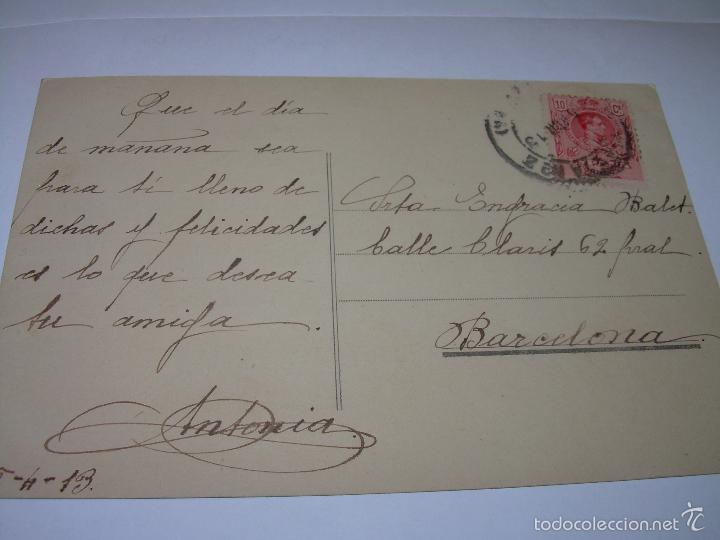 Que el dia
de mañana sea
para ti lleno de
dichas y felicidades
es lo que desea
tu amiga.
Antonia.
-4-13.
10 Cs
Srta. Engracia Balet.
Calle Claris 62 pral
Barcelona.
todocoleccion.net
todocoleccion